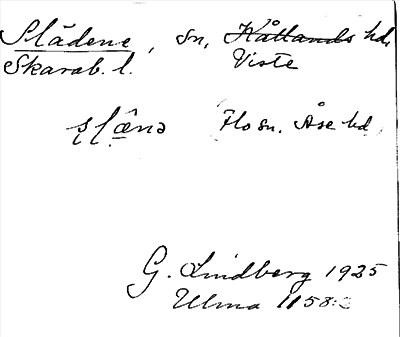 Slädene, sn, Kållands hd.
Skarab. l. Viste
sl͟änə Flo sn. Åse hd.
G. Lindberg 1925
Ulma 1158:2